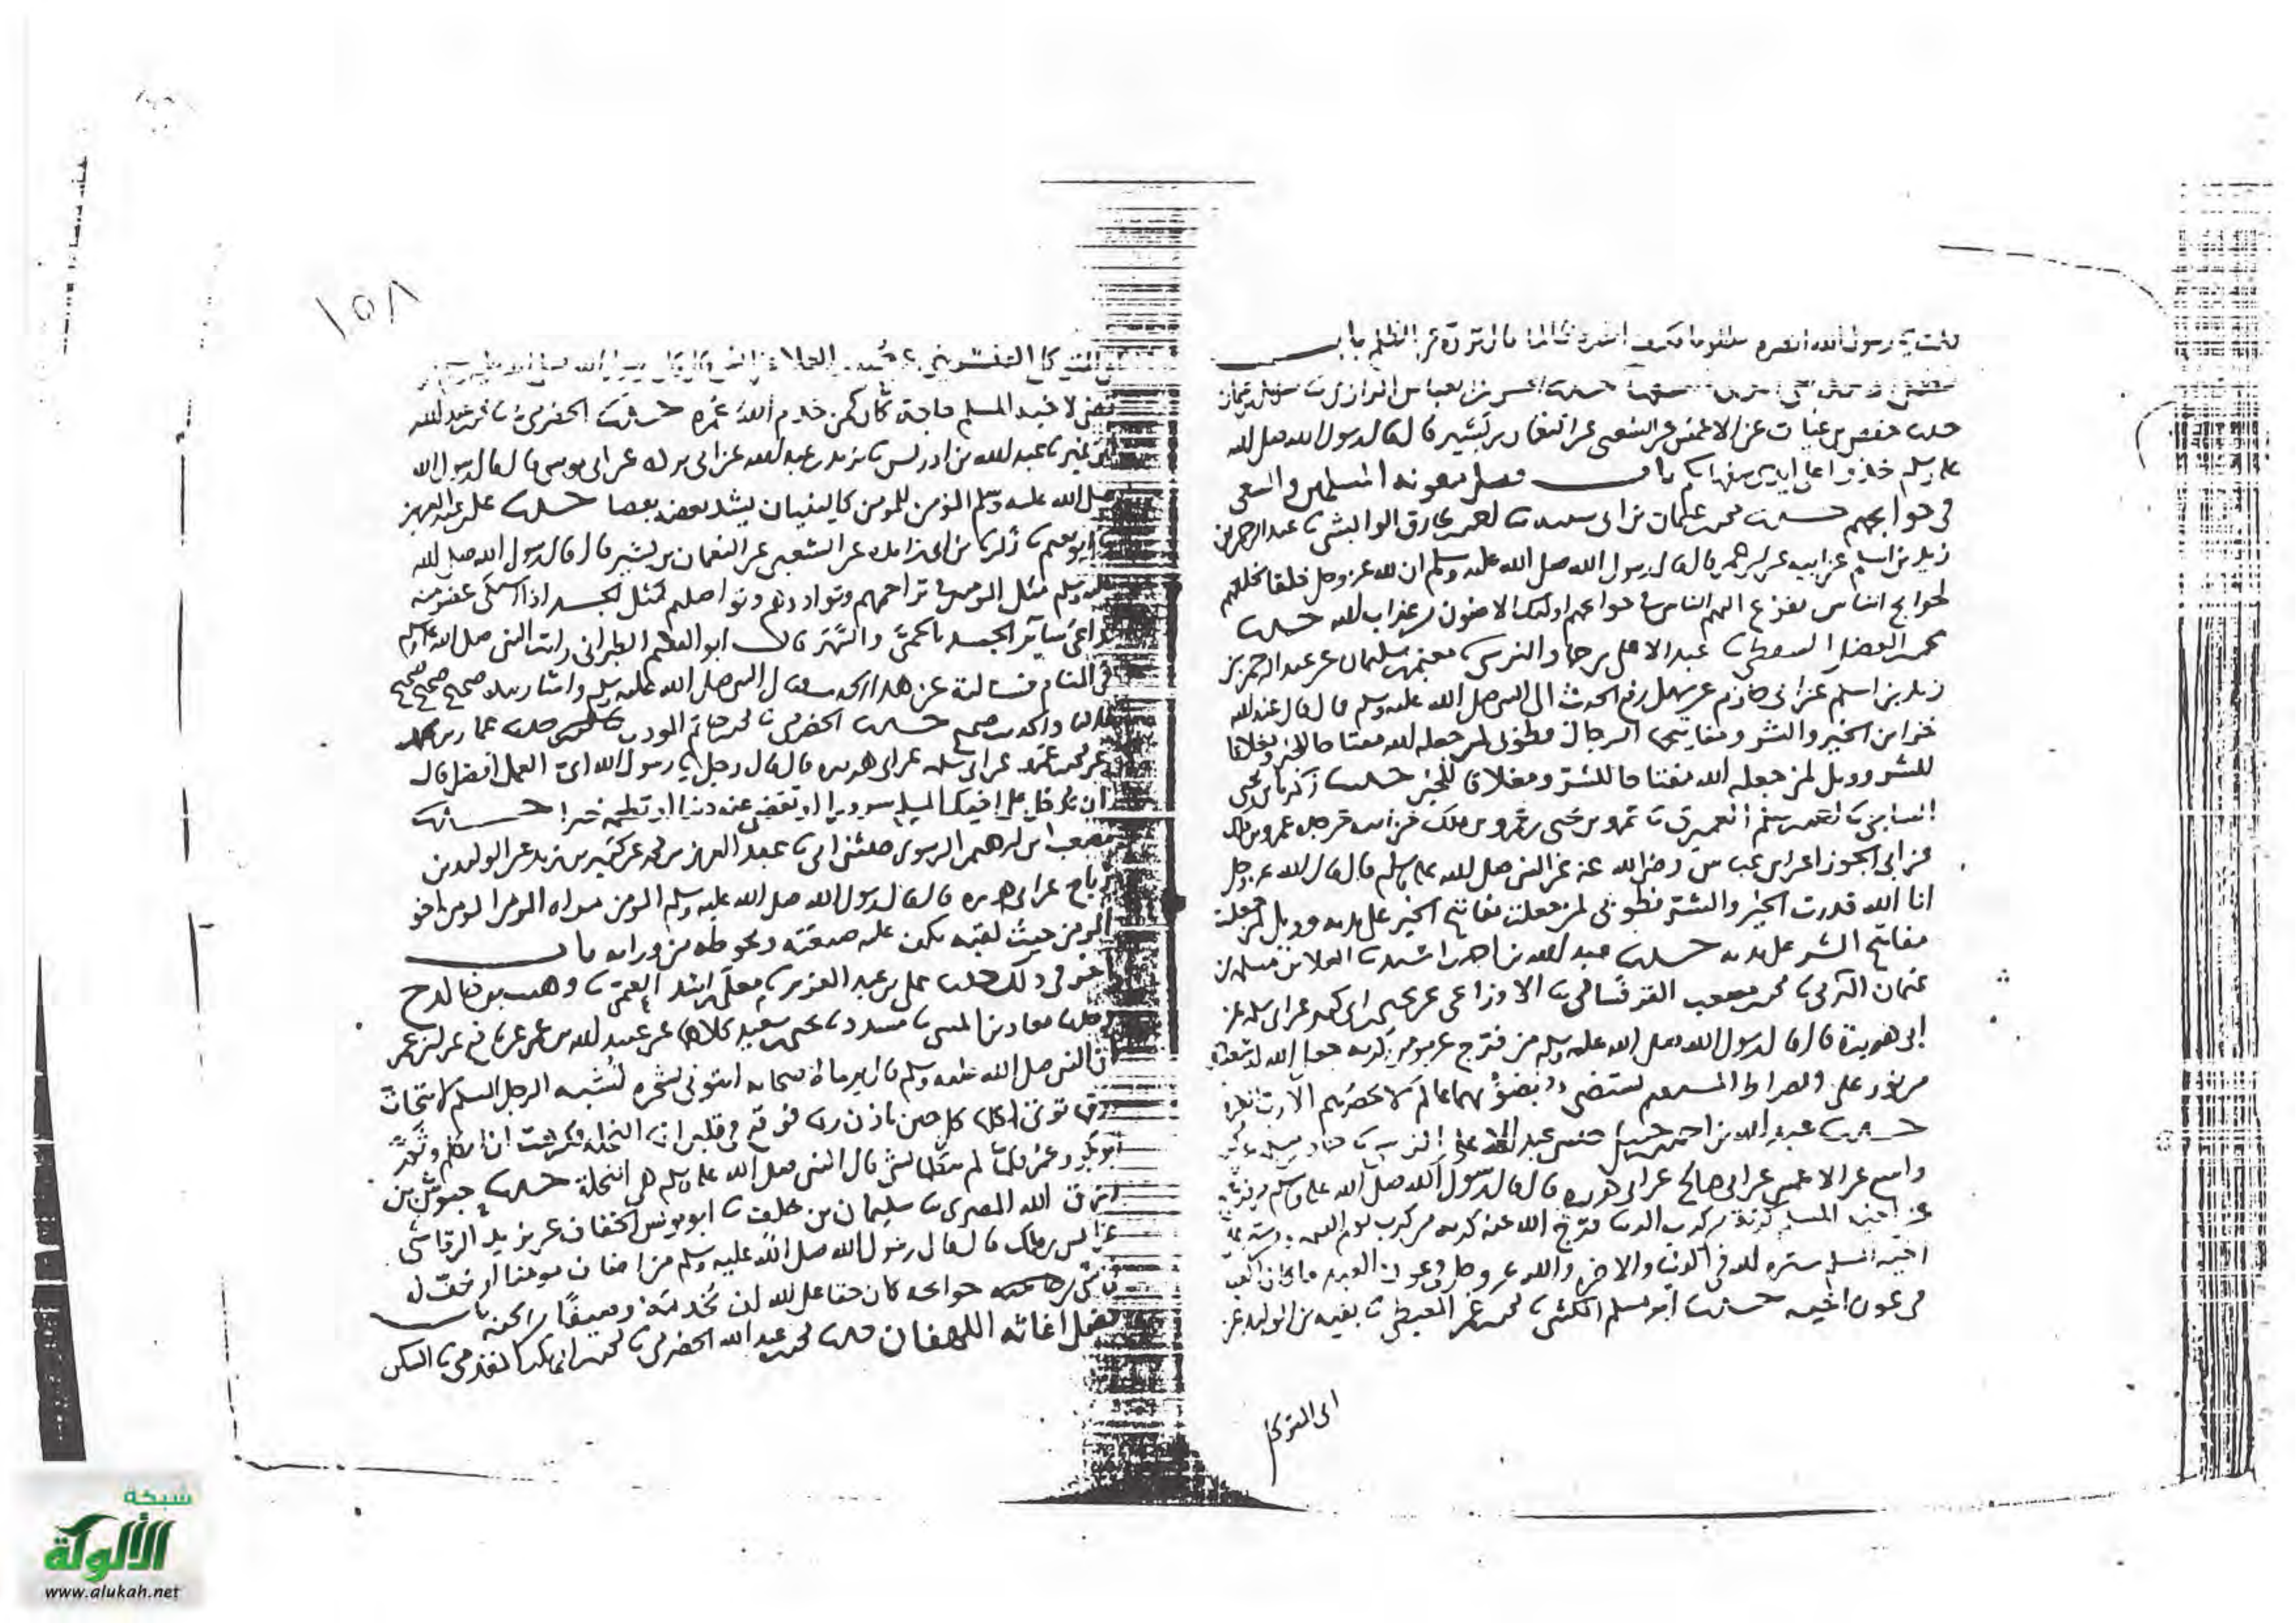 قلت يا رسول الله انصره مظلوما فكيف انصره ظالما قال ترده عن الظلم باب
حدثنا الحسن بن العباس الرازي ثنا سهل بن عثمان
حدثنا حفص بن غياث عن الاعمش عن الشعبي عن النعمان بن بشير قال قال رسول الله صلى الله
عليه وسلم خذوا على ايدي سفهائكم باب فضل معونة المسلمين والسعي
في حوائجهم حدثنا محمد بن عثمان بن ابي سعيد ثنا احمد بن طارق الوابشي ثنا عبد الرحمن بن
زيد بن اسلم عن ابيه عن ابن عمر قال قال رسول الله صلى الله عليه وسلم ان لله عز وجل خلقا خلقهم
لحوائج الناس يفزع اليهم الناس في حوائجهم اولئك الامنون من عذاب الله حدثنا
محمد بن الفضل السقطي ثنا عبد الاعلى بن حماد النرسي ثنا معتمر بن سليمان عن عبد الرحمن بن
زيد بن اسلم عن ابي حازم عن سهل رفع الحديث الى النبي صلى الله عليه وسلم قال قال عند الله
خزائن الخير والشر ومفاتيحها الرجال فطوبى لمن جعله الله مفتاحا للخير ومغلاقا
للشر وويل لمن جعله الله مفتاحا للشر ومغلاقا للخير حدثنا زكريا بن يحيى
الساجي ثنا احمد بن مسلم العميري ثنا عمرو بن يحيى بن عمرو بن مالك عن ابيه عن جده عمرو بن مالك
عن ابي الجوزا عن ابن عباس رضي الله عنه عن النبي صلى الله عليه وسلم قال قال الله عز وجل
انا الله قدرت الخير والشر فطوبى لمن جعلت مفاتح الخير على يديه وويل لمن جعلت
مفاتح الشر على يديه حدثنا عبد الله بن احمد ثنا العلا بن مسلمة بن
عثمان التركي ثنا محمد بن مصعب القرقساني ثنا الاوزاعي عن يحيى بن ابي كثير عن ابي سلمة عن
ابي هريرة قال قال رسول الله صلى الله عليه وسلم من فرج عن مومن كربه جعل الله له شعبة
من نور على الصراط يستضي بضوئهما عالم لا يحصيهم الا رب العزة
حدثنا عبد الله بن احمد بن حنبل حدثني عبد الاعلى النرسي ثنا حماد بن سلمة عن محمد بن
واسع عن الاعمش عن ابي صالح عن ابي هريرة قال قال رسول الله صلى الله عليه وسلم من فرج
عن اخيه المسلم كربة من كرب الدنيا فرج الله عنه كربة من كرب يوم القيمة ومن ستر على
اخيه المسلم ستره الله في الدنيا والاخرة والله عز وجل في عون العبد ما كان العبد
في عون اخيه حدثنا ابو مسلم الكشي ثنا محمد بن عمر المعيطي ثنا بقية بن الوليد عن
ابي المتوكل
١٥٨
المتوكل القنسريني عن حميد بن العلا عن انس قال قال رسول الله صلى الله عليه وسلم من
قضى لاخيه المسلم حاجة كان كمن خدم الله عمره حدثنا الحضرمي ثنا محمد بن عبد الله
ابن نمير ثنا عبد الله بن ادريس ثنا بريد بن عبد الله عن ابي بردة عن ابي موسى قال قال رسول الله
صلى الله عليه وسلم المؤمن للمؤمن كالبنيان يشد بعضه بعضا حدثنا علي بن عبد العزيز
ثنا ابو نعيم ثنا زكريا بن ابي زائدة عن الشعبي عن النعمان بن بشير قال قال رسول الله صلى الله
عليه وسلم مثل المومنين في تراحمهم وتواددهم وتواصلهم كمثل الجسد اذا اشتكى عضو منه
تداعى سائر الجسد بالحمى والسهر قال ابو القاسم الطبراني رايت النبي صلى الله عليه وسلم
في المنام فسالته عن هذا الحديث فقال النبي صلى الله عليه وسلم واشار بيده صحيح صحيح صحيح
حدثنا الحضرمي ثنا محمد بن حاتم المودب حدثنا عمار بن محمد
عن محمد بن عمرو عن ابي سلمة عن ابي هريرة قال قال رجل يا رسول الله اي العمل افضل قال
ان تدخل على اخيك المسلم سرورا او تقضي عنه دينا او تطعمه خبزا حدثنا
مصعب بن ابراهيم الزبيري حدثني ابي ثنا عبد العزيز بن محمد عن كثير بن زيد عن الوليد بن
رباح عن ابي هريرة قال قال رسول الله صلى الله عليه وسلم المومن مراة المومن المومن اخو
المومن حيث لقيه يكف عليه ضيعته ويحوطه من ورائه باب
اخر في ذلك حدثنا علي بن عبد العزيز ثنا معلى بن اسد العمي ثنا وهيب بن خالد ح
وحدثنا معاذ بن المثنى ثنا مسدد ثنا يحيى بن سعيد كلاهما عن عبيد الله بن عمر عن نافع عن ابن عمر
ان النبي صلى الله عليه وسلم قال يوما لاصحابه انبئوني بشجرة تشبه الرجل المسلم لا يتحات
ورقها توتي اكلها كل حين باذن ربها فوقع في قلبي انها النخلة فكرهت ان اتكلم وثم
ابو بكر وعمر فلما لم يتكلما بشي قال النبي صلى الله عليه وسلم هي النخلة حدثنا جبوش بن
رزق الله المصري ثنا سليمان بن خلف ثنا ابو يونس الخفاف عن يزيد الرقاشي
عن انس بن مالك قال قال رسول الله صلى الله عليه وسلم من اضاف مومنا او خف له
في شي من حوائجه كان حقا على الله ان يخدمه وصيفا في الجنة باب
فضل اغاثة اللهفان حدثنا محمد بن عبد الله الحضرمي ثنا محمد بن ابي بكر المقدمي ثنا السكن
شبكة
الألوكة
www.alukah.net